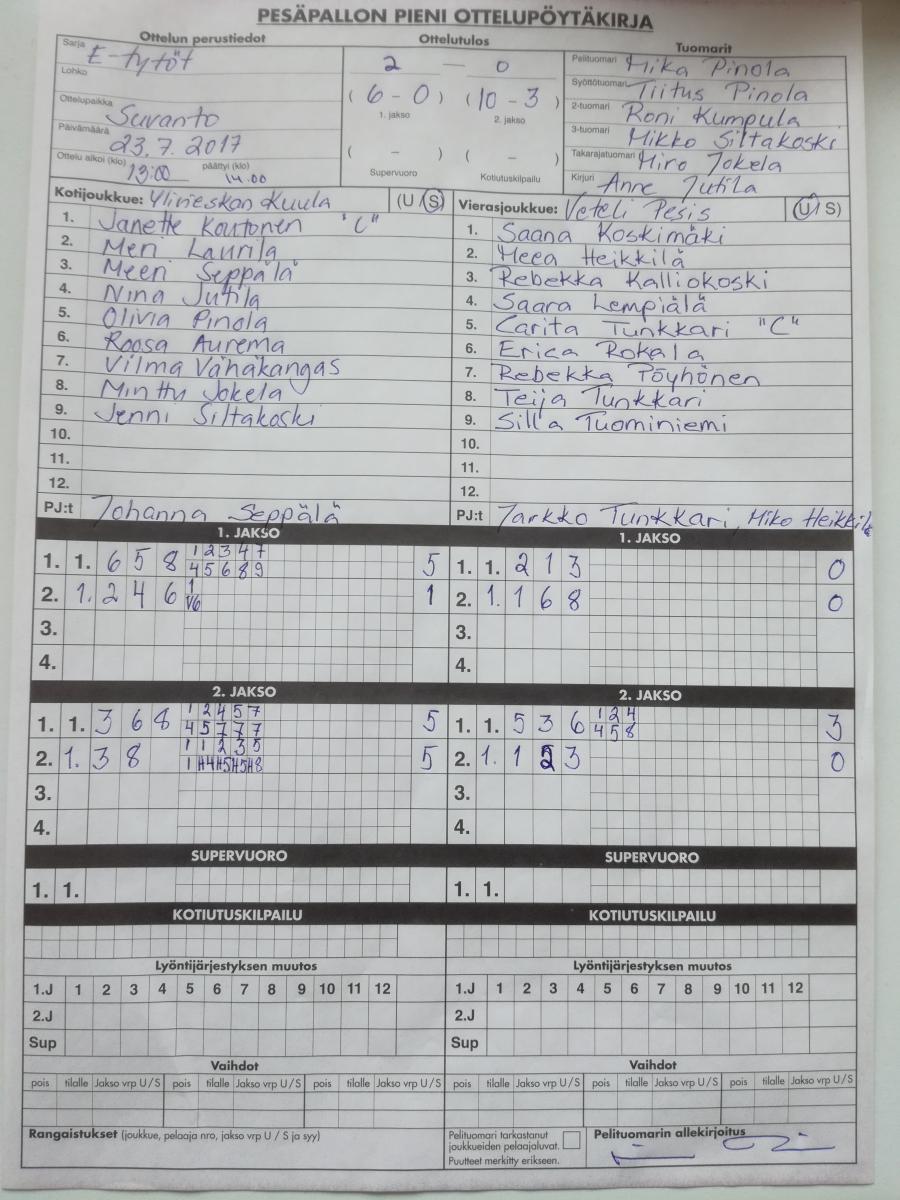 PESÄPALLON PIENI OTTELUPÖYTÄKIRJA
Ottelun perustiedot Ottelutulos Tuomarit
Sarja E-tytöt
Lohko
Ottelupaikka Suvanto
Päivämäärä 23.7.2017
Ottelu alkoi (klo) 13:00 päättyi (klo) 14.00
2 — 0
(6 - 0) (10 - 3)
1. jakso 2. jakso
( - ) ( - )
Supervuoro Kotiutuskilpailu
Pelituomari Mika Pinola
Syöttötuomari Tiitus Pinola
2-tuomari Roni Kumpula
3-tuomari Mikko Siltakoski
Takarajatuomari Miro Jokela
Kirjuri Anne Jutila
Kotijoukkue: Ylivieskan Kuula (U / S)
1. Janette Kautonen "C"
2. Meri Laurila
3. Meeri Seppälä
4. Nina Jutila
5. Olivia Pinola
6. Roosa Aurema
7. Vilma Vähäkangas
8. Minttu Jokela
9. Jenni Siltakoski
10.
11.
12.
PJ:t Johanna Seppälä
Vierasjoukkue: Veteli Pesis (U / S)
1. Saana Koskimäki
2. Meea Heikkilä
3. Rebekka Kalliokoski
4. Saara Lempiälä
5. Carita Tunkkari "C"
6. Erica Rokala
7. Rebekka Pöyhönen
8. Teija Tunkkari
9. Silla Tuominiemi
10.
11.
12.
PJ:t Jarkko Tunkkari, Miko Heikkilä
1. JAKSO
1. 1. 6 5 8 1 2 3 4 7 5
4 5 6 8 9
2. 1. 2 4 6 1 1
V6
3.
4.
1. JAKSO
1. 1. 2 1 3 0
2. 1. 1 6 8 0
3.
4.
2. JAKSO
1. 1. 3 6 8 1 2 4 5 7 5
4 5 7 7 7
2. 1. 3 8 1 1 2 3 5 5
1 H4 H5 H5 H8
3.
4.
2. JAKSO
1. 1. 5 3 6 1 2 4 3
4 5 8
2. 1. 1 2 3 0
3.
4.
SUPERVUORO SUPERVUORO
1. 1. 1. 1.
KOTIUTUSKILPAILU KOTIUTUSKILPAILU
Lyöntijärjestyksen muutos Lyöntijärjestyksen muutos
1.J 1 2 3 4 5 6 7 8 9 10 11 12 1.J 1 2 3 4 5 6 7 8 9 10 11 12
2.J 2.J
Sup Sup
Vaihdot Vaihdot
pois tilalle Jakso vrp U / S pois tilalle Jakso vrp U / S pois tilalle Jakso vrp U / S pois tilalle Jakso vrp U / S pois tilalle Jakso vrp U / S pois tilalle Jakso vrp U / S
Rangaistukset (joukkue, pelaaja nro, jakso vrp U / S ja syy)
Pelituomari tarkastanut
joukkueiden pelaajaluvat.
Puutteet merkitty erikseen.
Pelituomarin allekirjoitus